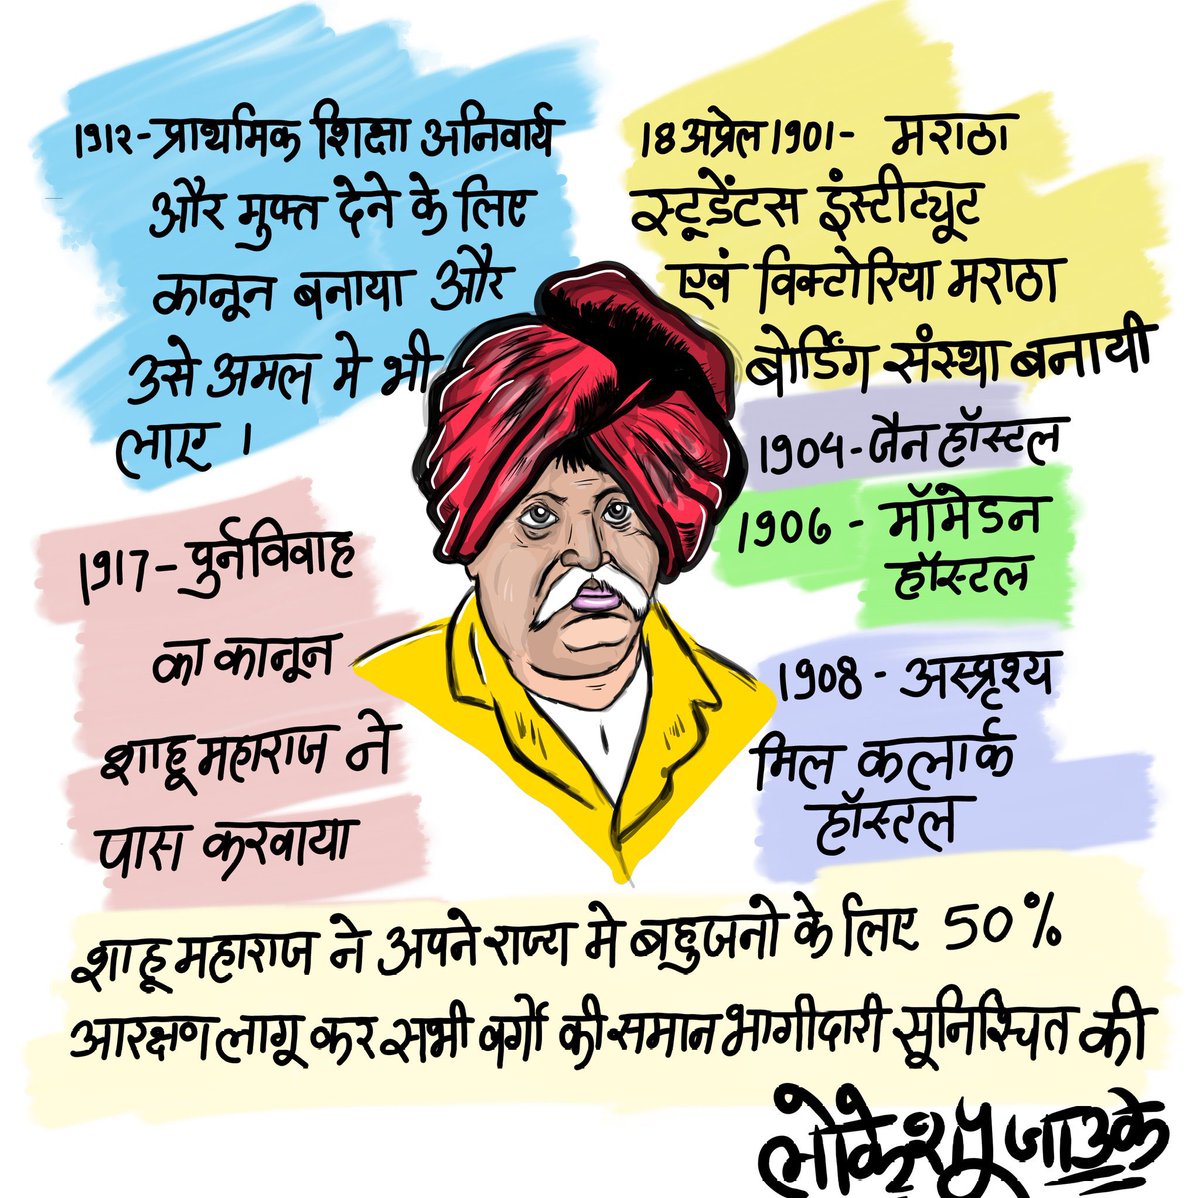 1912- प्राथमिक शिक्षा अनिवार्य
और मुफ्त देने के लिए
कानून बनाया और
उसे अमल मे भी
लाए ।
18 अप्रेल 1901- मराठा
स्टूडेंटस इंस्टीट्यूट
एवं विक्टोरिया मराठा
बोर्डिंग संस्था बनायी
1904-जैन हॉस्टल
1906 - मॉमेडन
हॉस्टल
1908 - अस्प्रृश्य
मिल कलार्क
हॉस्टल
1917- पुर्नविवाह
का कानून
शाहू महाराज ने
पास करवाया
शाहू महाराज ने अपने राज्य मे बहुजनो के लिए 50%
आरक्षण लागू कर सभी वर्गो की समान भागीदारी सूनिश्चित की
लोकेश पूजा उके